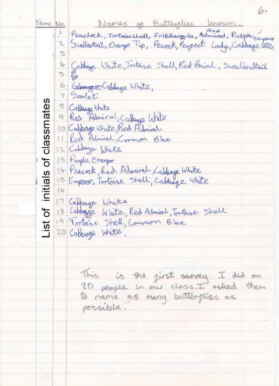 6.
Name No. Names of Butterflies known.
1 Peacock, Tortoiseshell, Fritillary, Red Admiral, Purple Emperor
2 Swallowtail, Orange Tip, Peacock, Painted Lady, Cabbage White
3
4 Cabbage White, Tortoise Shell, Red Admiral, Swallowtail
5
6 Cabbage White,
7 Scarlet
8 Cabbage White
9 Red Admiral, Cabbage White
10 Cabbage White, Red Admiral
11 Red Admiral, Common Blue
12 Cabbage White
13 Purple Emperor
14 Peacock, Red Admiral, Cabbage White
15 Emperor, Tortoise Shell, Cabbage White
16
17 Cabbage White
18 Cabbage White, Red Admiral, Tortoise Shell
19 Tortoise Shell, Common Blue
20 Cabbage White.
List of initials of classmates
This is the first survey I did on
20 people in our class. I asked them
to name as many butterflies as
possible.